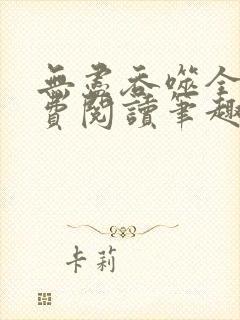 無盡吞噬全
費閱讀筆趣
卡莉